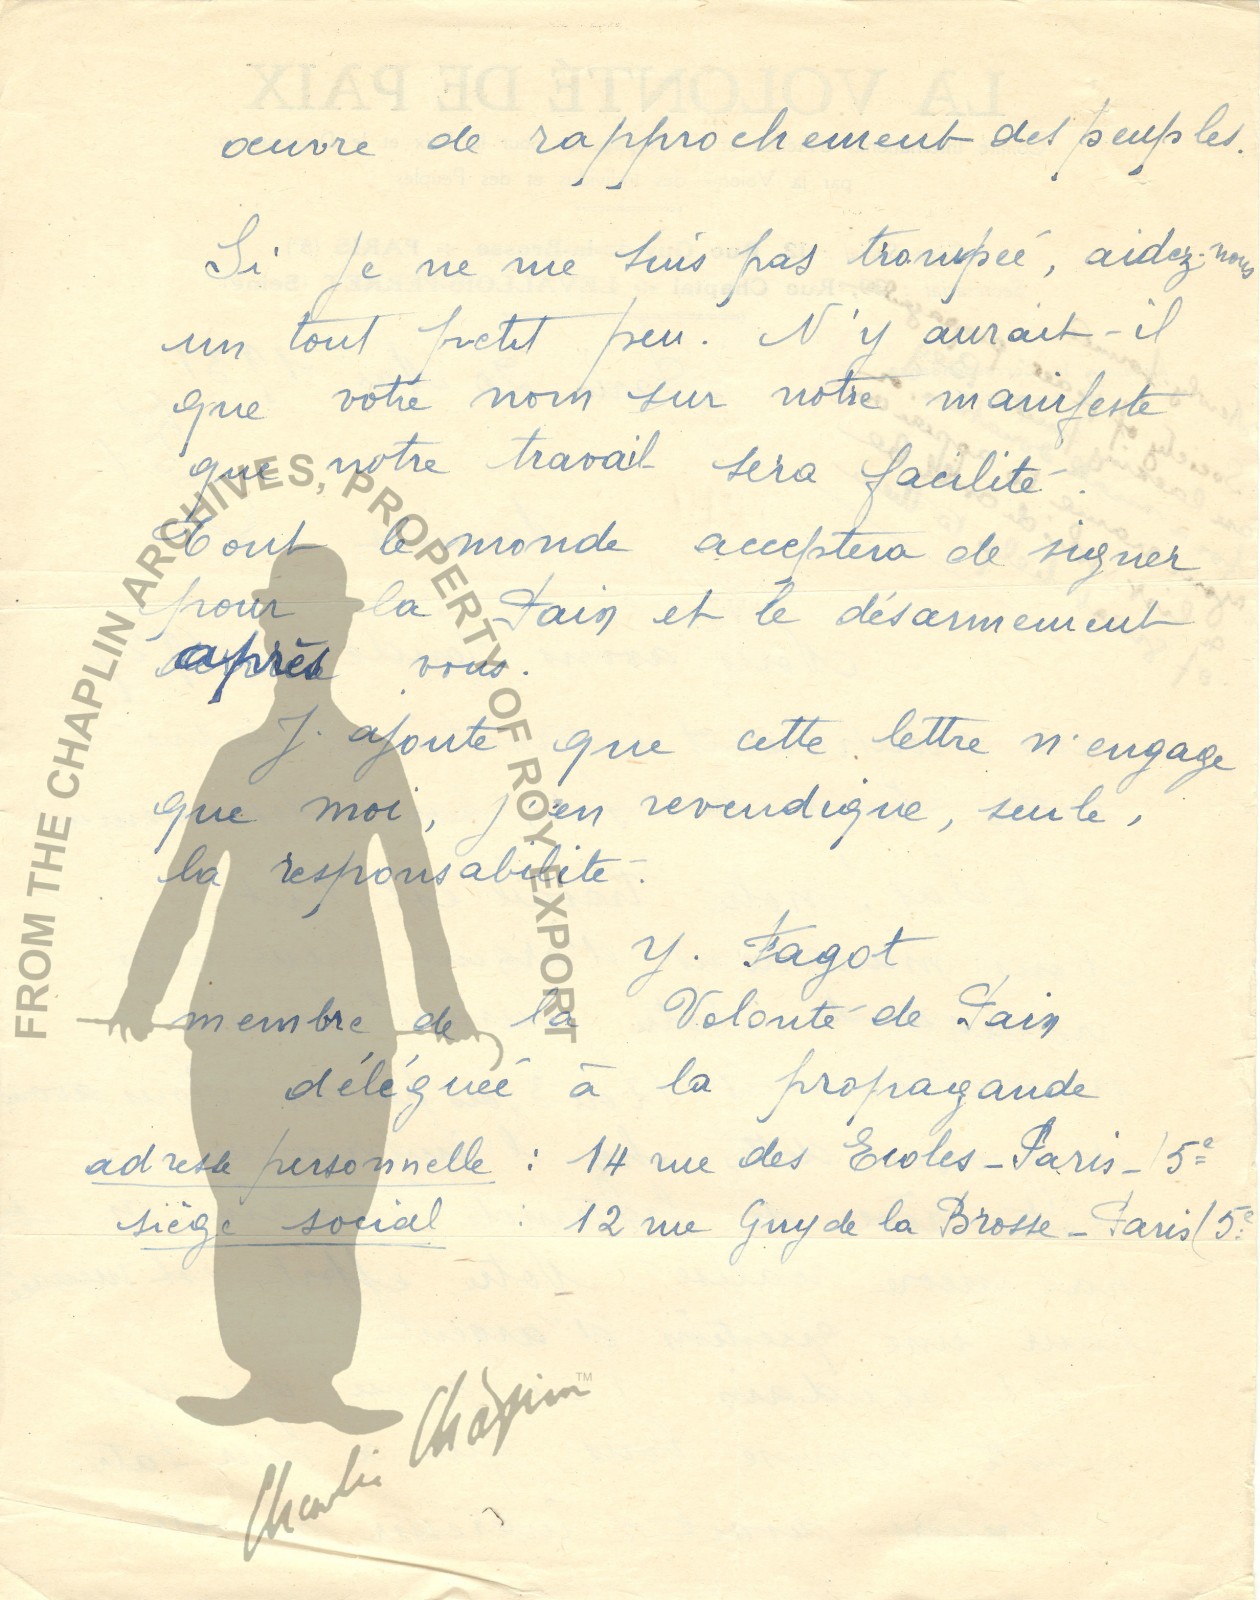 œuvre de rapprochement des peuples.
Si je ne me suis pas trompée, aidez-nous
un tout petit peu. N'y aurait-il
que votre nom sur notre manifeste
que notre travail sera facilité.
Tout le monde acceptera de signer
pour la Paix et le désarmement
après vous.
J'ajoute que cette lettre n'engage
que moi, j'en revendique, seule,
la responsabilité.
Y. Fagot
membre de la Volonté de Paix
déléguée à la propagande
adresse personnelle : 14 rue des Ecoles - Paris - 5e
siège social : 12 rue Guy de la Brosse - Paris (5e
FROM THE CHAPLIN ARCHIVES, PROPERTY OF ROY EXPORT
Charlie Chaplin TM
LA VOLONTÉ DE PAIX